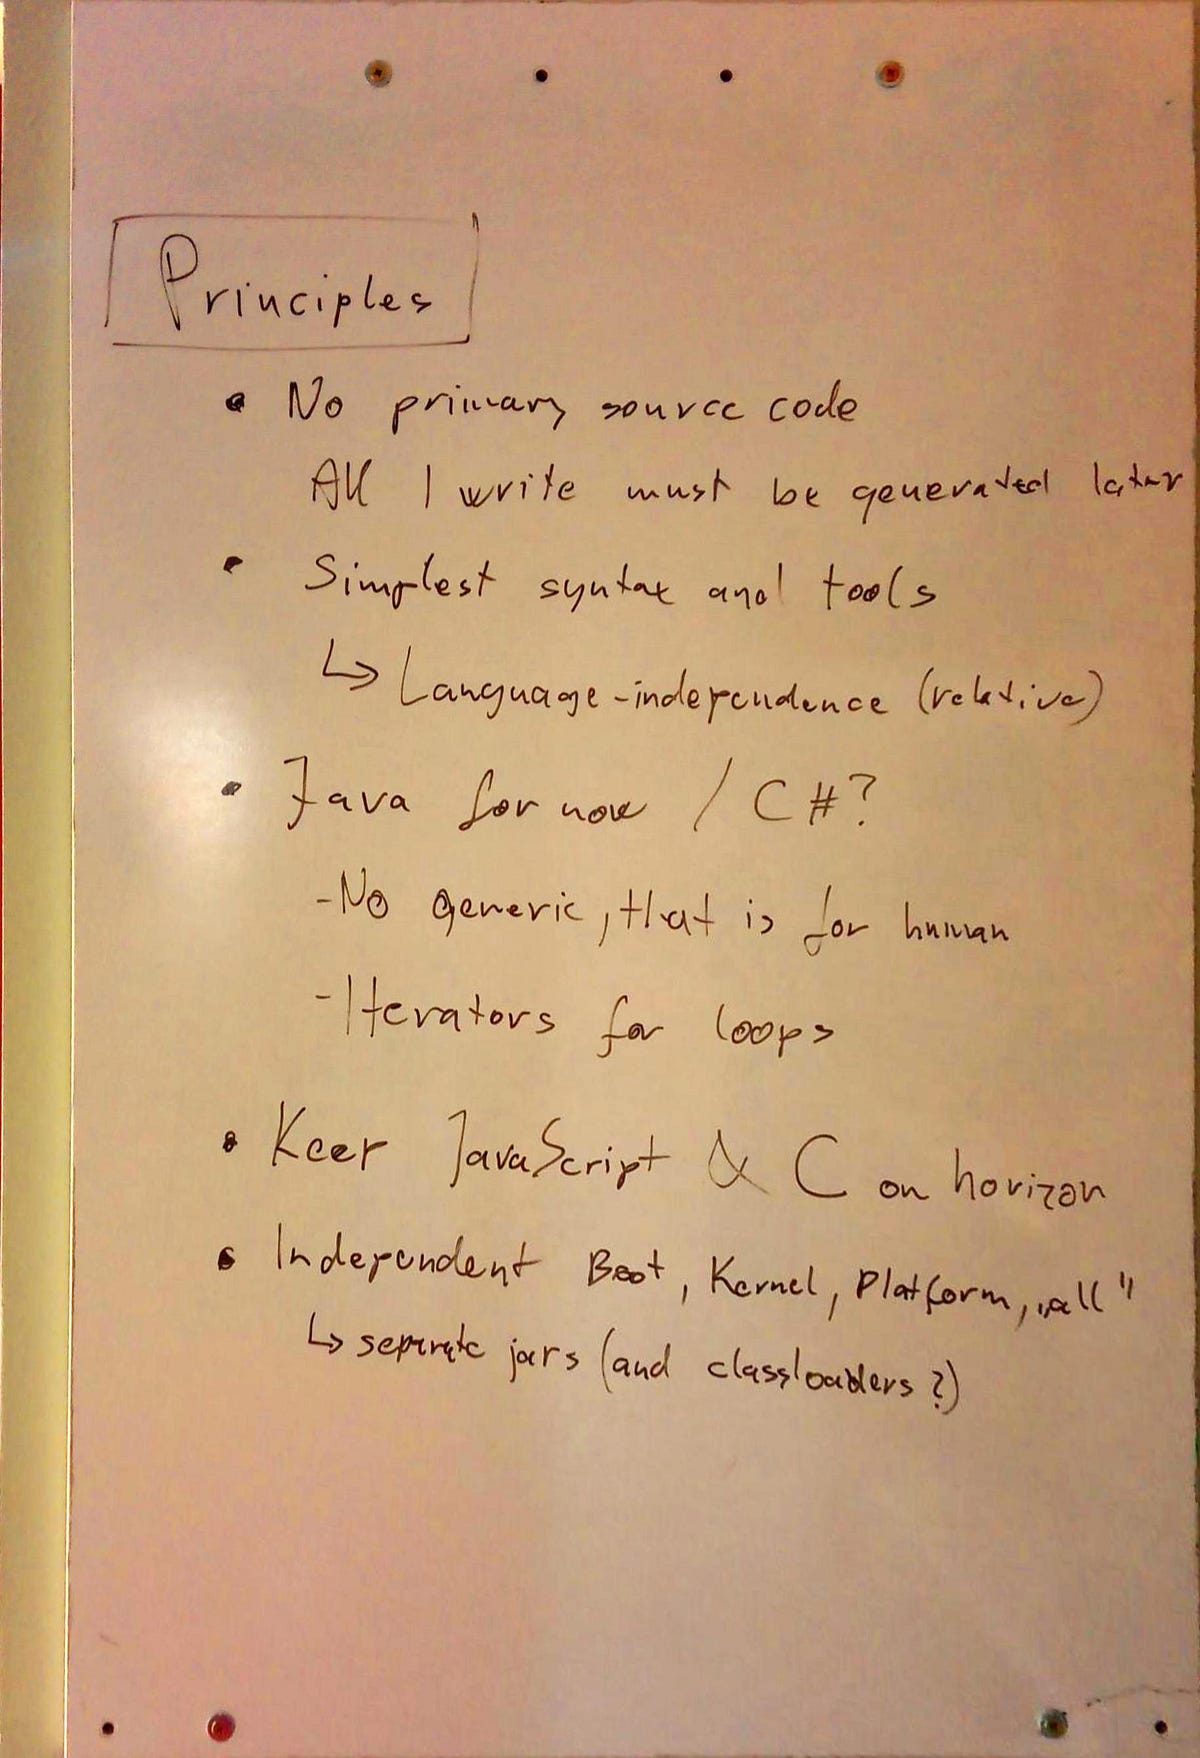 Principles
• No primary source code
All I write must be generated later
• Simplest syntax and tools
↳ Language-independence (relative)
• Java for now / C#?
- No generic, that is for human
- Iterators for loops
• Keep JavaScript & C on horizon
• Independent Boot, Kernel, Platform, „all"
↳ separate jars (and classloaders?)